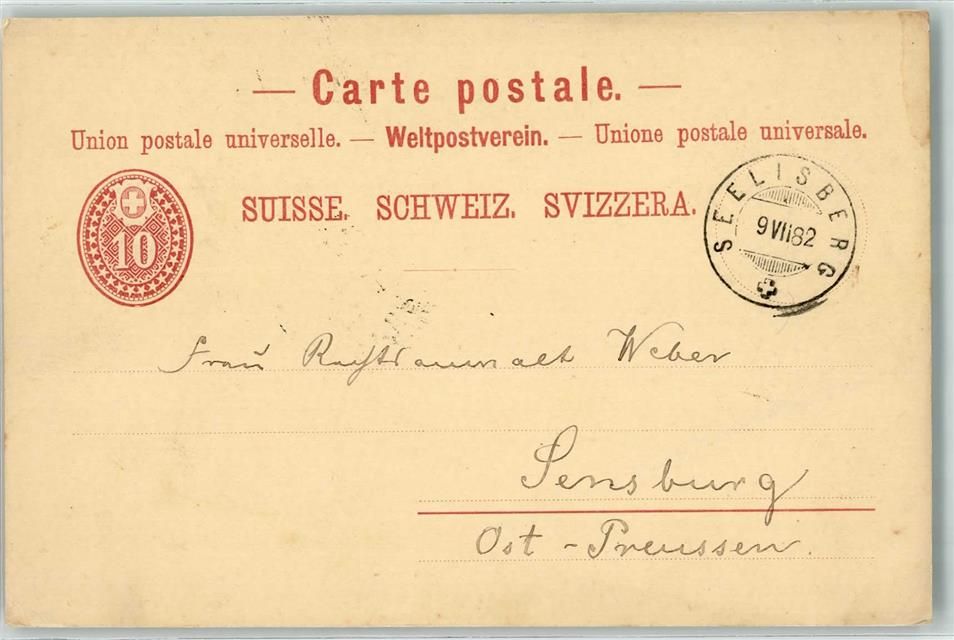 — Carte postale. —
Union postale universelle. — Weltpostverein. — Unione postale universale.
SUISSE. SCHWEIZ. SVIZZERA.
10
SEELISBERG
9 VII 82
Frau Rechtsanwalt Weber
Sensburg
Ost-Preussen.